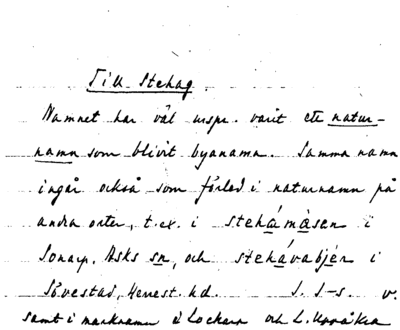 Till Stehag
Namnet har väl urspr. varit ett natur-
namn som blivit byanamn. Samma namn
ingår också som förled i naturnamn på
andra orter, t.ex. i stehámåsen i
Asks sn, och stehávabjér i
Sövestad, Herrest. hd. v.
samt i marknamn å Lockarp och L.